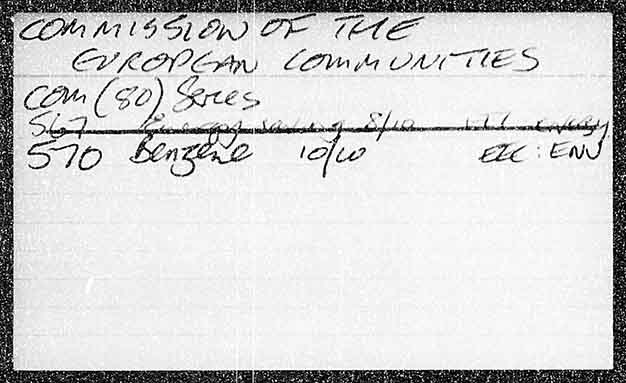 COMMISSION OF THE
EUROPEAN COMMUNITIES
COM (80) Series
567 Energy saving 8/10 energy
570 Benzene 10/10 EEC: ENV